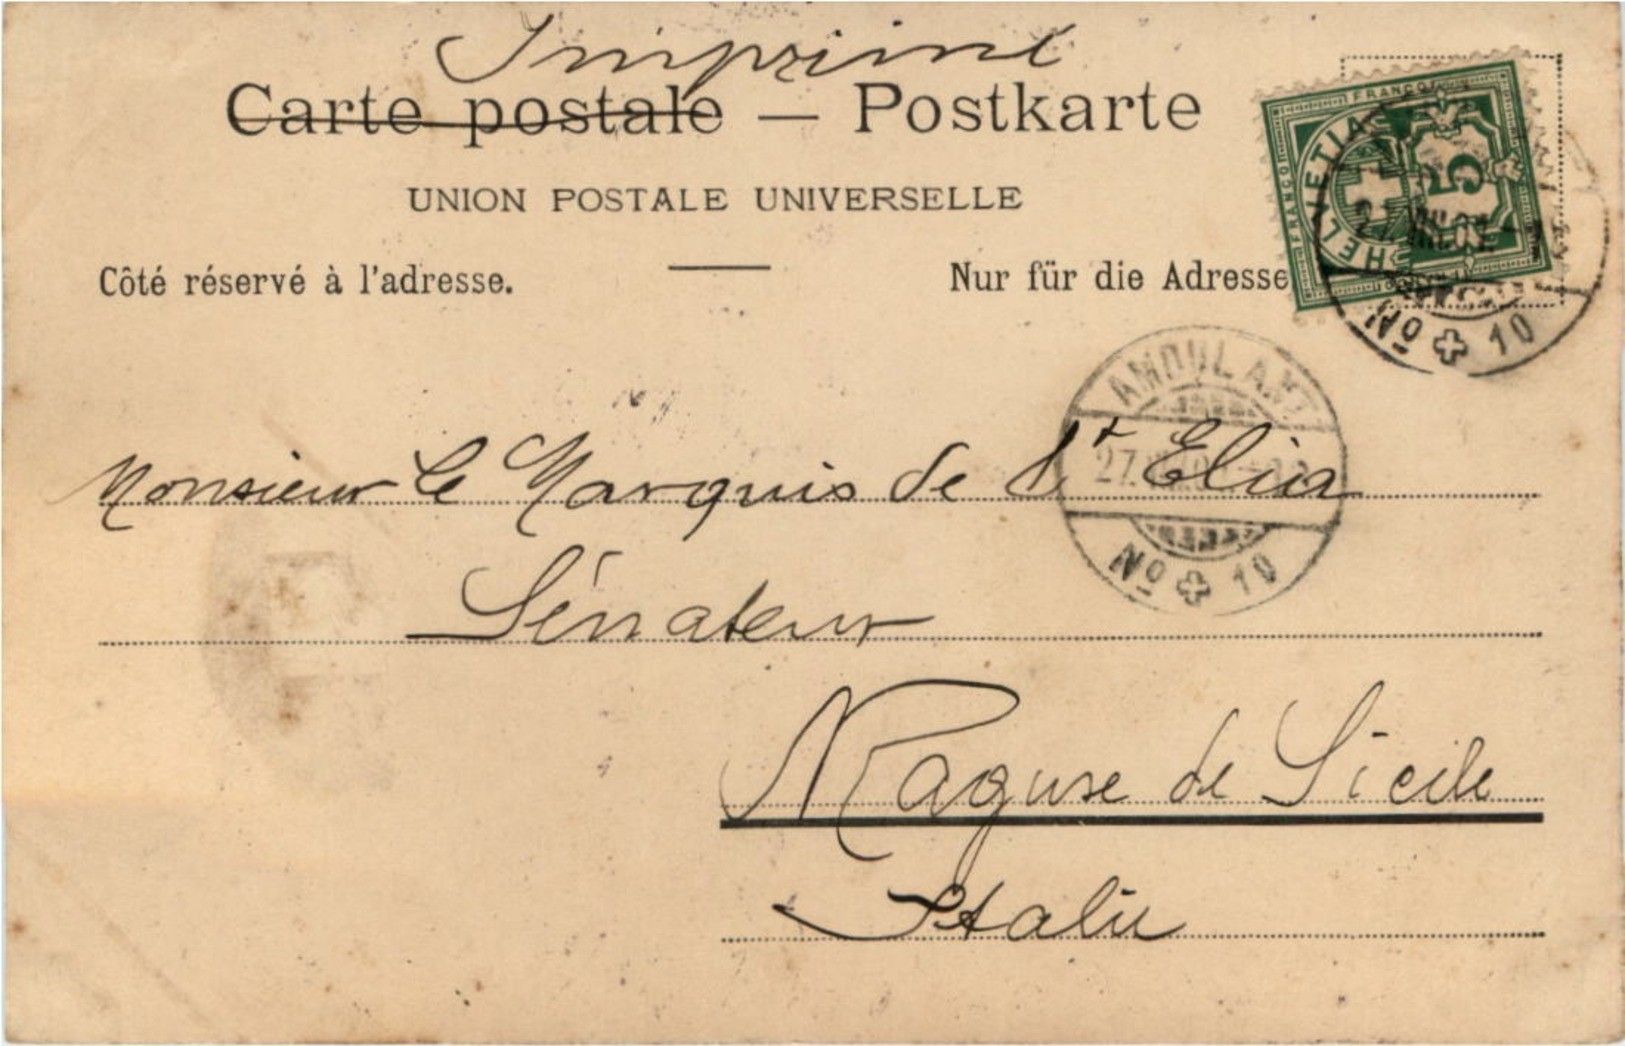 Imprimé
Carte postale — Postkarte
UNION POSTALE UNIVERSELLE
Côté réservé à l'adresse.
Nur für die Adresse
FRANCO
FRANCO
HELVETIA
5
27 VIII 01
No 10
AMBULANT
27.
No 10
Monsieur le Marquis de St Elia
Sénateur
Raguse de Sicile
Italie